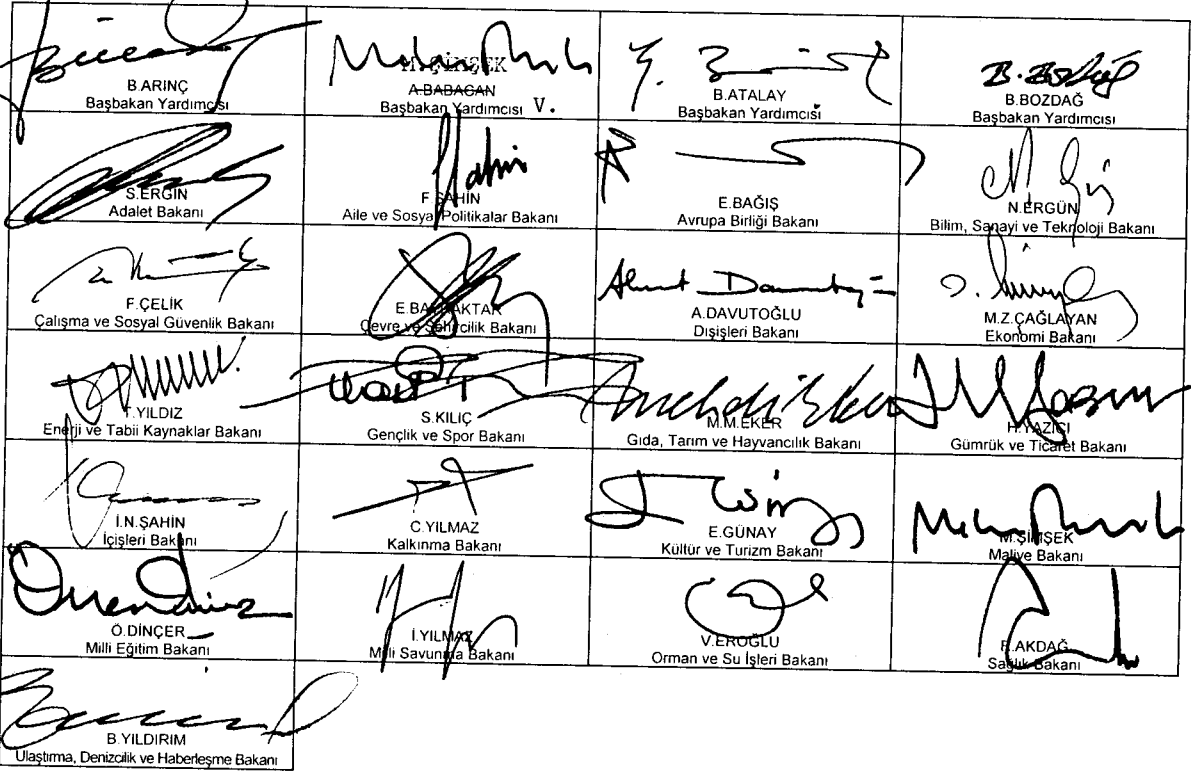 B.ARINÇ
Başbakan Yardımcısı
M.ŞİMŞEK
A.BABACAN
Başbakan Yardımcısı V.
B.ATALAY
Başbakan Yardımcısı
B.BOZDAĞ
Başbakan Yardımcısı
S.ERGİN
Adalet Bakanı
F.ŞAHİN
Aile ve Sosyal Politikalar Bakanı
E.BAĞIŞ
Avrupa Birliği Bakanı
N.ERGÜN
Bilim, Sanayi ve Teknoloji Bakanı
F.ÇELİK
Çalışma ve Sosyal Güvenlik Bakanı
E.BAYRAKTAR
Çevre ve Şehircilik Bakanı
Ahmet Davutoğlu
A.DAVUTOĞLU
Dışişleri Bakanı
M.Z.ÇAĞLAYAN
Ekonomi Bakanı
T.YILDIZ
Enerji ve Tabii Kaynaklar Bakanı
S.KILIÇ
Gençlik ve Spor Bakanı
M.M.EKER
Gıda, Tarım ve Hayvancılık Bakanı
H.YAZICI
Gümrük ve Ticaret Bakanı
İ.N.ŞAHİN
İçişleri Bakanı
C.YILMAZ
Kalkınma Bakanı
E.GÜNAY
Kültür ve Turizm Bakanı
M.ŞİMŞEK
Maliye Bakanı
Ö.DİNÇER
Milli Eğitim Bakanı
İ.YILMAZ
Milli Savunma Bakanı
V.EROĞLU
Orman ve Su İşleri Bakanı
R.AKDAĞ
Sağlık Bakanı
B.YILDIRIM
Ulaştırma, Denizcilik ve Haberleşme Bakanı